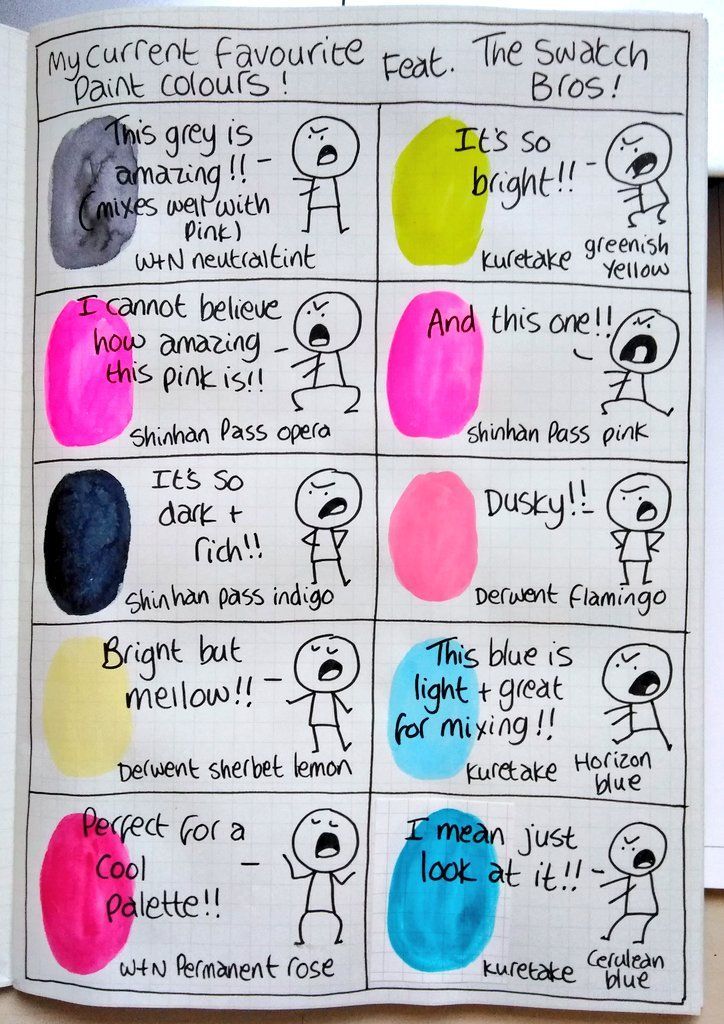 My current favourite
paint colours!
Feat.
The Swatch
Bros!
This grey is
amazing!!
(mixes well with
pink)
W+N neutral tint
It's so
bright!!
Kuretake greenish
yellow
I cannot believe
how amazing
this pink is!!
Shinhan Pass opera
And this one!!
Shinhan Pass pink
It's so
dark +
rich!!
Shinhan pass indigo
Dusky!!
Derwent flamingo
Bright but
mellow!!
Derwent sherbet lemon
This blue is
light + great
for mixing!!
Kuretake Horizon
blue
Perfect for a
Cool
palette!!
W+N Permanent rose
I mean just
look at it!!
Kuretake Cerulean
blue